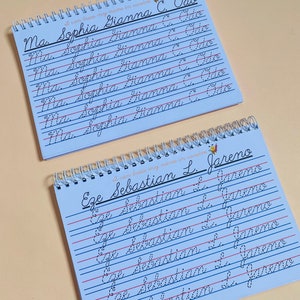 Ma. Sophia Gianna C. Oto
Ma. Sophia Gianna C. Oto
Ma. Sophia Gianna C. Oto
Ma. Sophia Gianna C. Oto
Ma. Sophia Gianna C. Oto
Ma. Sophia Gianna C. Oto
Eze Sebastian L. Jareno
Eze Sebastian L. Jareno
Eze Sebastian L. Jareno
Eze Sebastian L. Jareno
Eze Sebastian L. Jareno
Eze Sebastian L. Jareno